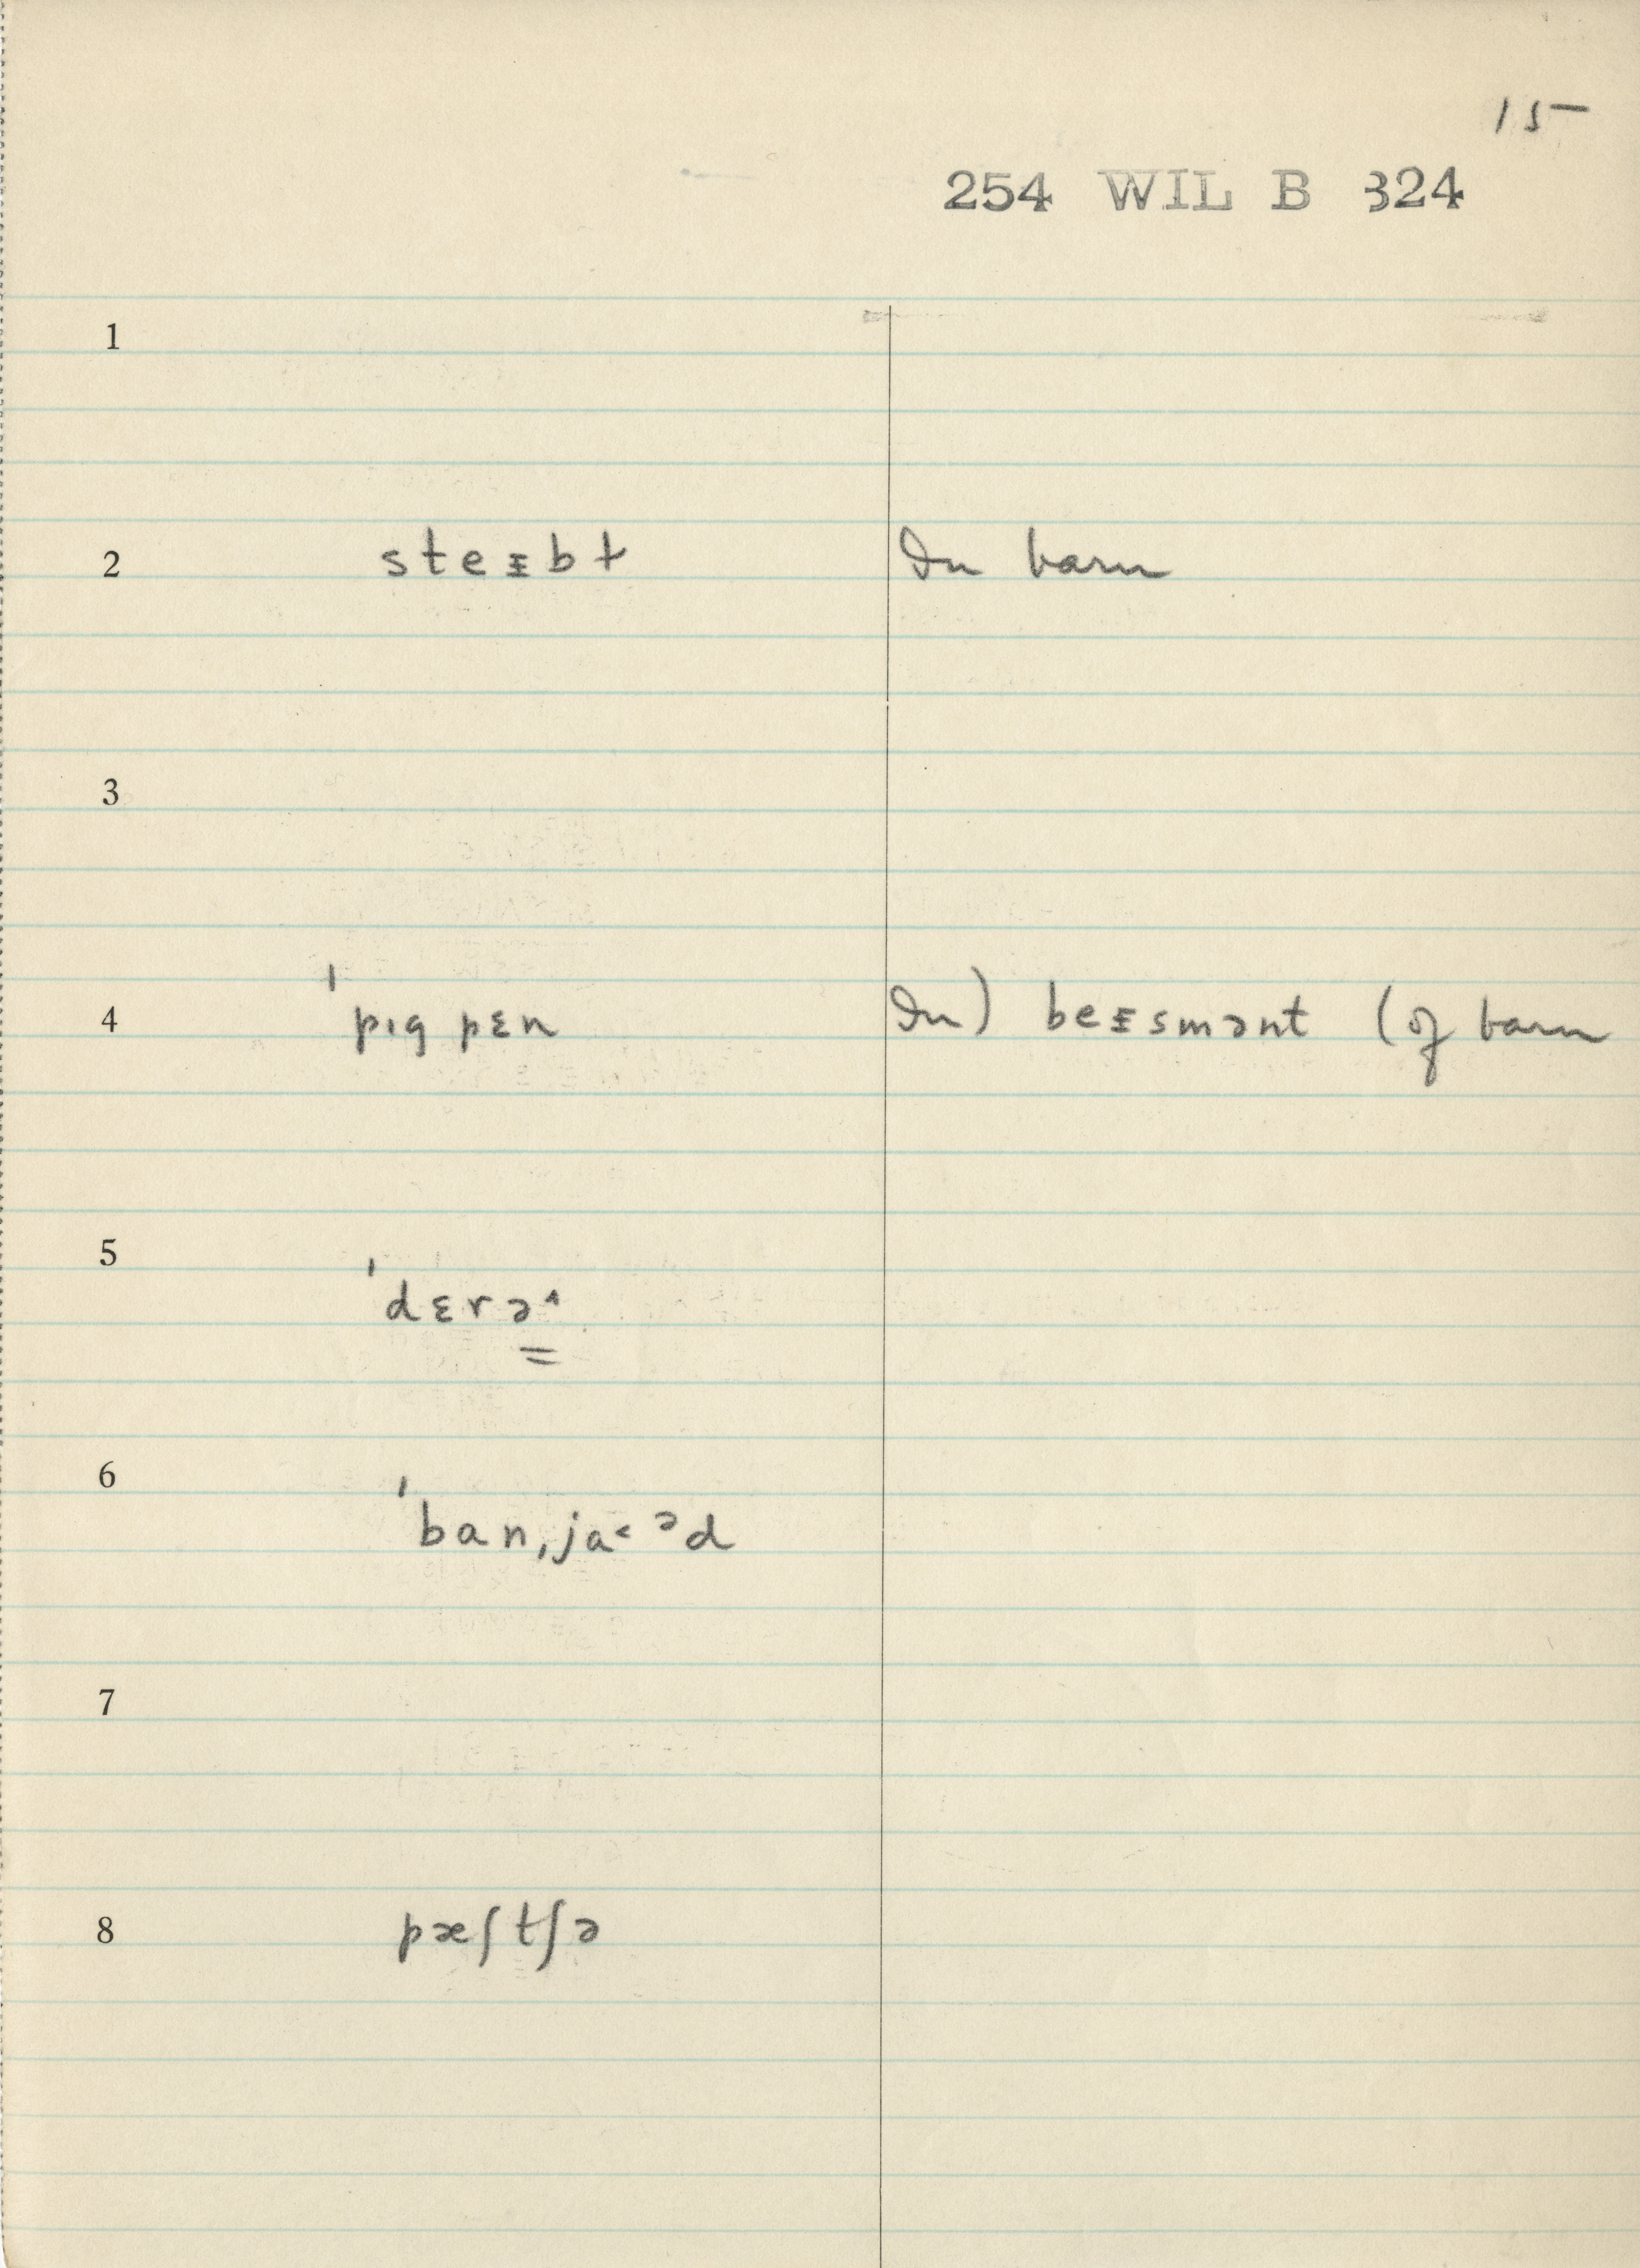 15
254 WIL B 324
1
2 steᵻbɫ In barn
3
4 ˈpɪg pɛn In) beᵻsmənt (of barn
5 ˈdɛrə˄
6 ˈbanˌja˂ᵊd
7
8 pæʃtʃə